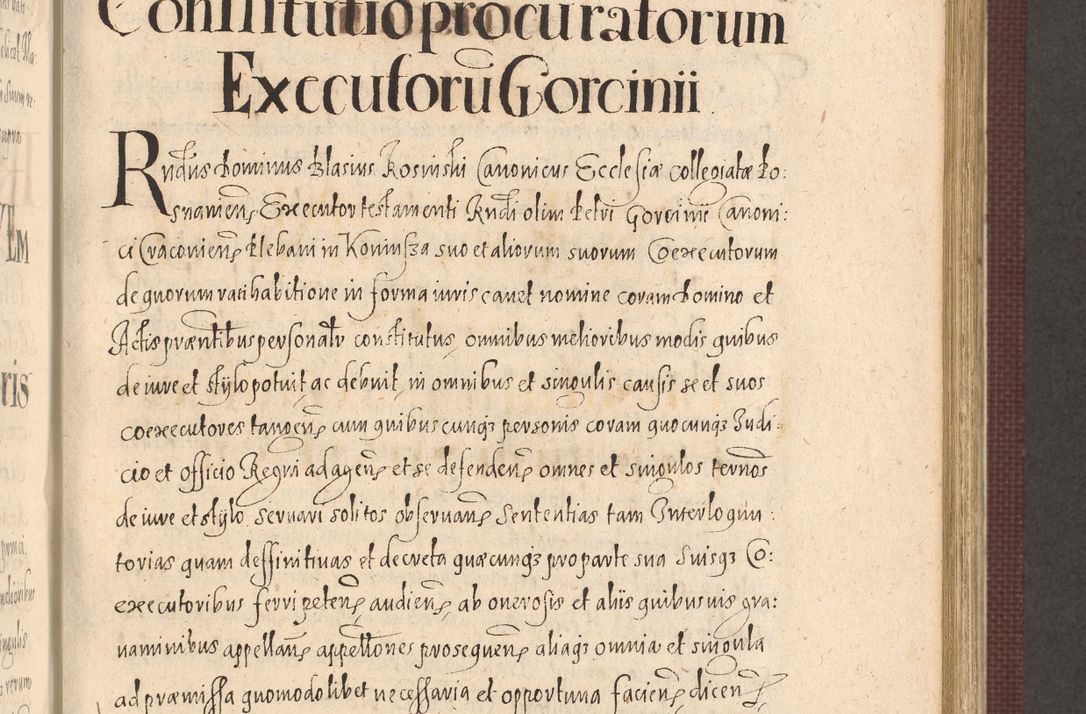 Constitutio procuratorum
Executorū Gorcinii
Rndus Dominus Blasius Rosinski Canonicus Ecclesiæ Collegiatæ Po:
snanien Executor testamenti Rndi olim Petri Gorcinii Canoni:
ci Cracovien Plebani in Koninsza suo et aliorum suorum Coexecutorum
de quorum ratihabitione in forma iuris cavet nomine coram Domino et
Actis præntibus personalr constitutus, omnibus melioribus modis quibus
de iure et stylo potuit ac debuit, in omnibus et singulis causis se et suos
coexecutores tangen cum quibuscunqz personis coram quocunqz Judi:
cio et officio Regni ad agen et se defenden omnes et singulos ternos
de iure et stylo servari solitos observan Sententias tam Interloqu:
torias quam deffinitivas et decreta quæcunqz pro parte sua suisqz Co:
executoribus ferri peten audien ab onerosis et aliis quibusvis gra:
naminibus appellan appellones prosequen aliaqz omnia et singula
ad præmissa quomodolibet necessaria et opportuna facien dicen